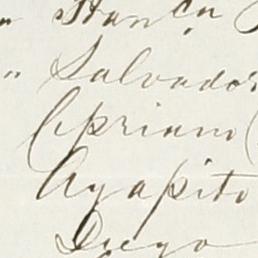 " Salvador
Cipriano (
Agapito
Diego